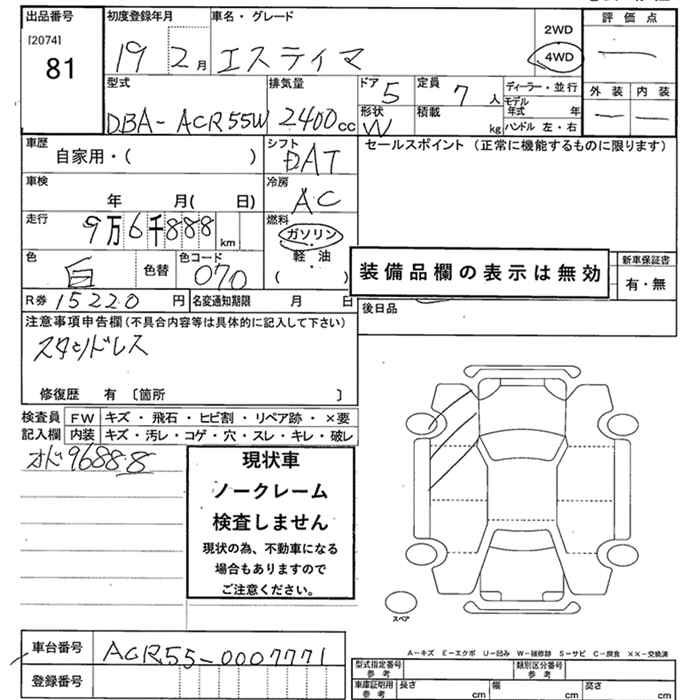 出品番号 初度登録年月 車名・グレード 評価点
[2074] 2WD
81 19 2月 エスティマ 4WD —
型式 排気量 ドア 5 定員 7人 ディーラー・並行 外装 内装
形状 W 積載 kg モデル年式 年 — —
DBA-ACR55W 2400cc ハンドル 左・右
車歴 シフト セールスポイント (正常に機能するものに限ります)
自家用・( ) DAT
車検 冷房
年 月( 日) AC
走行 燃料
9万6千888km ガソリン
色 色コード 軽油 装備品欄の表示は無効 新車保証書
白 色替 070 ( ) 有・無
R券 15220円 名変通知期限 月 日 後日品
注意事項申告欄(不具合内容等は具体的に記入して下さい)
スタッドレス
修復歴 有 〔箇所 〕
検査員 FW キズ・飛石・ヒビ割・リペア跡・×要
記入欄 内装 キズ・汚レ・コゲ・穴・スレ・キレ・破レ
オド96888
現状車
ノークレーム
検査しません
現状の為、不動車になる
場合もありますので
ご注意ください。
スペア
車台番号 ACR55-0007771
A-キズ E-エクボ U-凹み W-補修跡 S-サビ C-腐食 ××-交換済
登録番号 型式指定番号 参考 類別区分番号 参考
車庫証明用 参考 長さ cm 幅 cm 高さ cm